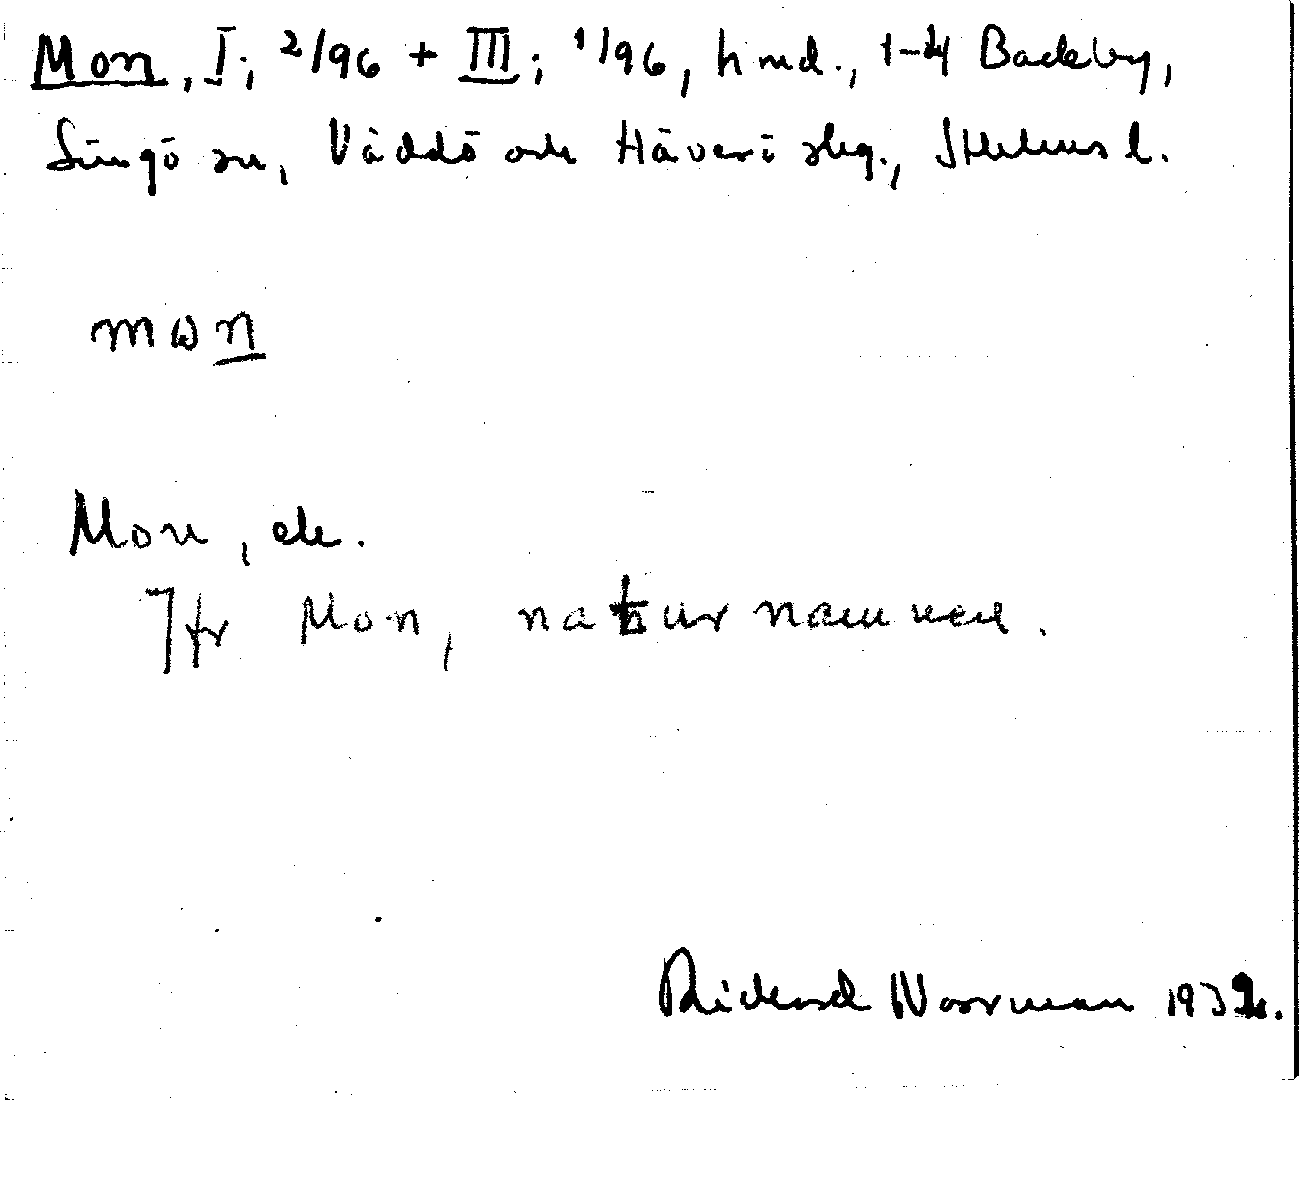 Mon, I; 2/96 + III; 1/96, hmd., 1-4 Backby,
Singö sn, Väddö och Häverö skg., Sthlms l.
mωn
Mon, ele.
Jfr Mon, naturnamnen.
Rickard Norrman 1932.